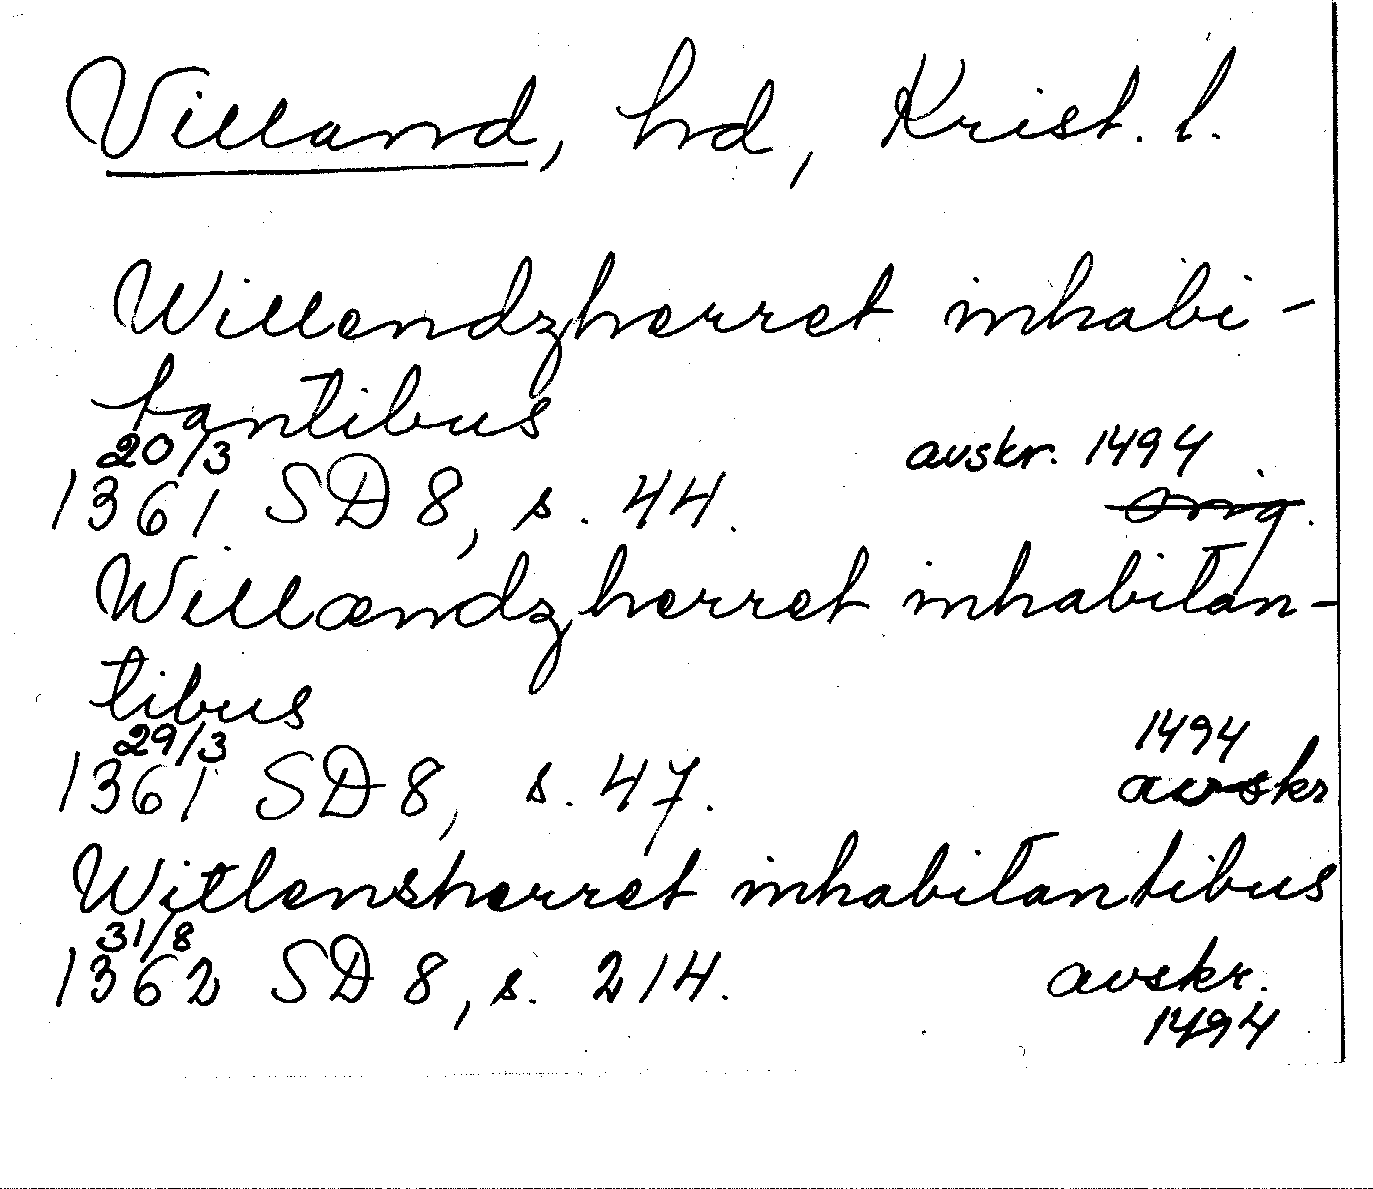 Villand, hd, Krist. l.
Willendzherret inhabi-
tantibus
20/3 avskr. 1494
1361 SD 8, s. 44. orig.
Willændzherret inhabitan-
tibus
29/3 1494
1361 SD 8, s. 47. avskr
Witlensherret inhabitantibus
31/8
1362 SD 8, s. 214. avskr.
1494